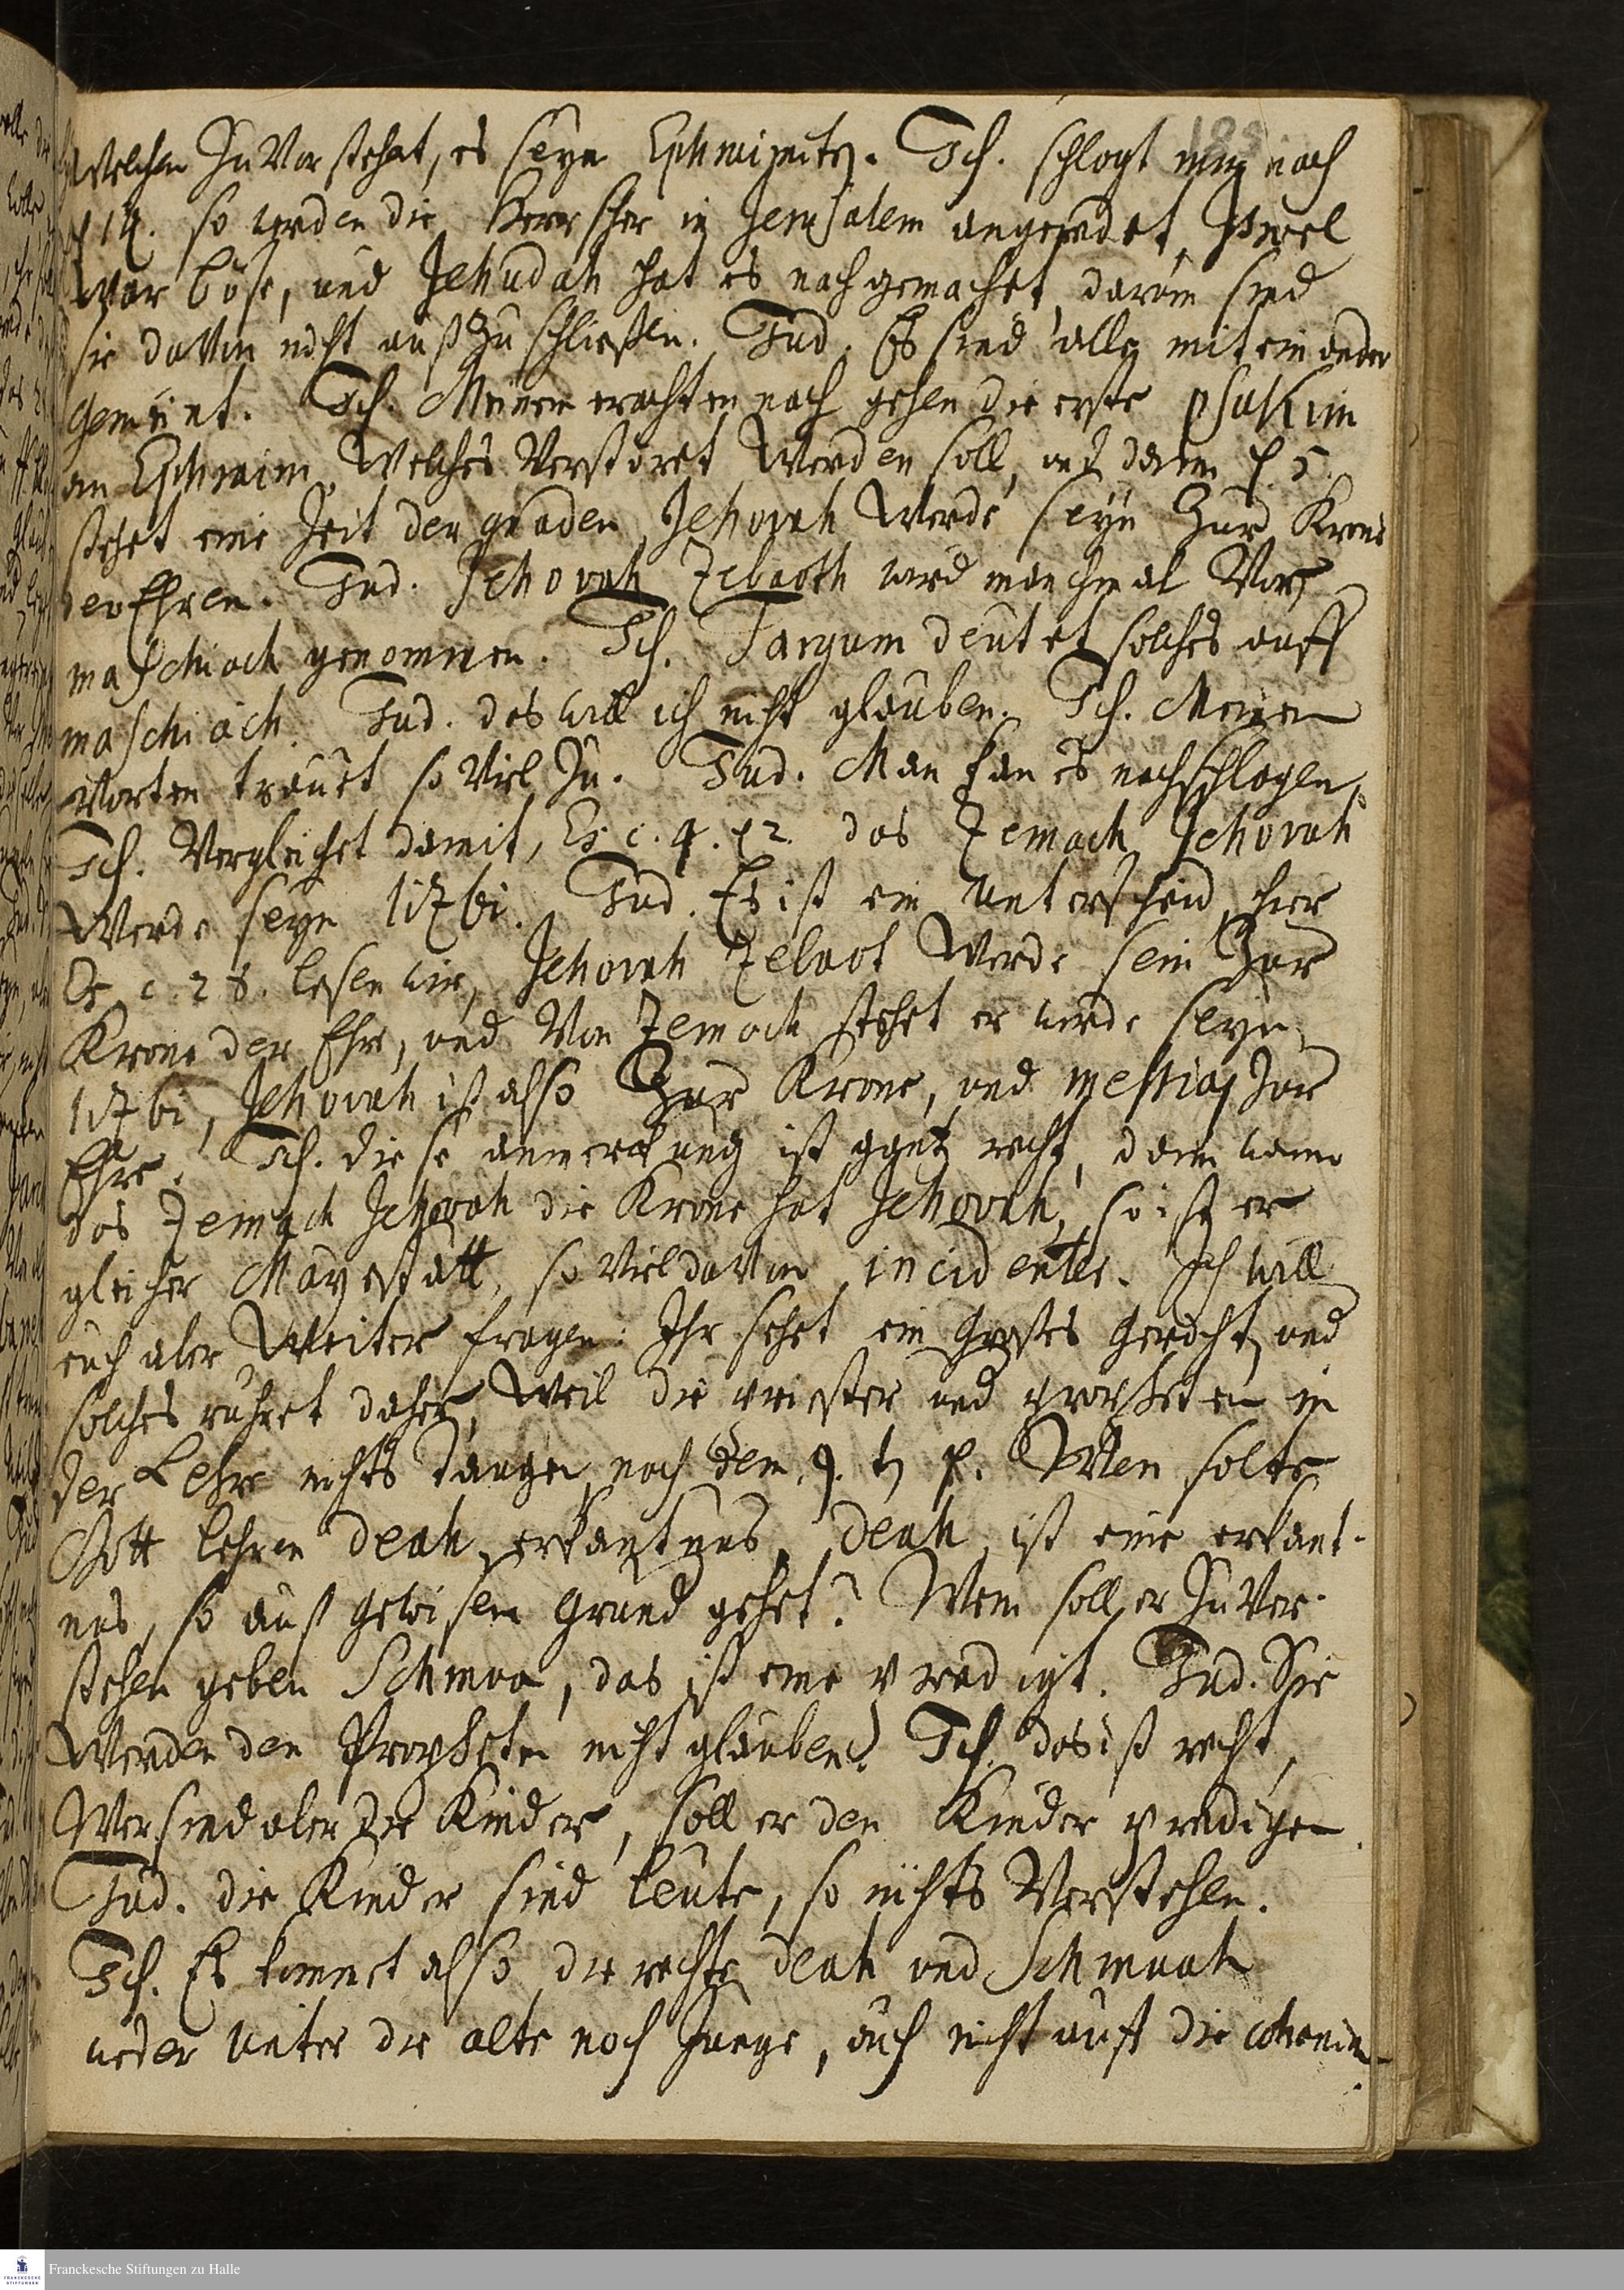 189
welchen zuvor stehat, es seyn Ephraimiten. Ich. schlagt nur nach
p 14. so werden die Herrscher in Jerusalem angeredet, Israel
war böse, und Jehudah hat es nachgemachet, darum sind
sie davon nicht außzuschließen. Jud. Es sind alle miteinander
gemeint. Ich. Meinem erachten nach gehen die erste psukim
an Ephraim, welches verstöret werden soll, und dann p. 5.
stehet eine Zeit der gnaden, Jehovah werde seyn Zur Krone
der Ehren. Jud. Jehovah Zebaoth wird manchmal vor
maschiach genommen. Ich. Targum deutet solches auff
maschiach. Jud. das will ich nicht glauben. Ich. Meinen
worten trauet so viel zu. Jud. Man kan es nachschlagen,
Ich. Vergleichet damit, Es. c. 4. p 2. das Zemach Jehovah
werde seyn lizbi. Jud. Es ist ein unterscheid, hier
Es. c. 28. lesen wir, Jehovah Zebaot werde sein Zur
Krone der Ehre, und von Zemach stehet er werde seyn
lizbi, Jehovah ist also Zur Krone, und messias Zur
Ehre. Ich. diese anmerckung ist gantz recht, dann wann
das Zemach Jehovah die Krone hat Jehovah, so ist er
gleicher Mayestätt, so viel davon incidenter. Ich will
euch aber weiter fragen: Ihr sehet ein großes gericht, und
solches rühret daher, weil die priester und propheten in
der Lehre nichts taugen, nach dem 9. p. Wen solte
Gott lehren deah, erkantnus, deah, ist eine erkant-
nus, so auß gewisem grund gehet? Wem soll er zu ver-
stehen geben Schmua, das ist eine predigt. Jud. Sie
werden den Propheten nicht glauben. Ich. das ist recht,
Wer sind aber die Kinder, soll er den Kinder predigen
Jud. die Kinder sind leute, so nichts verstehen.
Ich. Es kommet also die rechte deah und Schmuah
weder unter die alte noch Junge, auch nicht auff die cohanim
Franckesche Stiftungen zu Halle